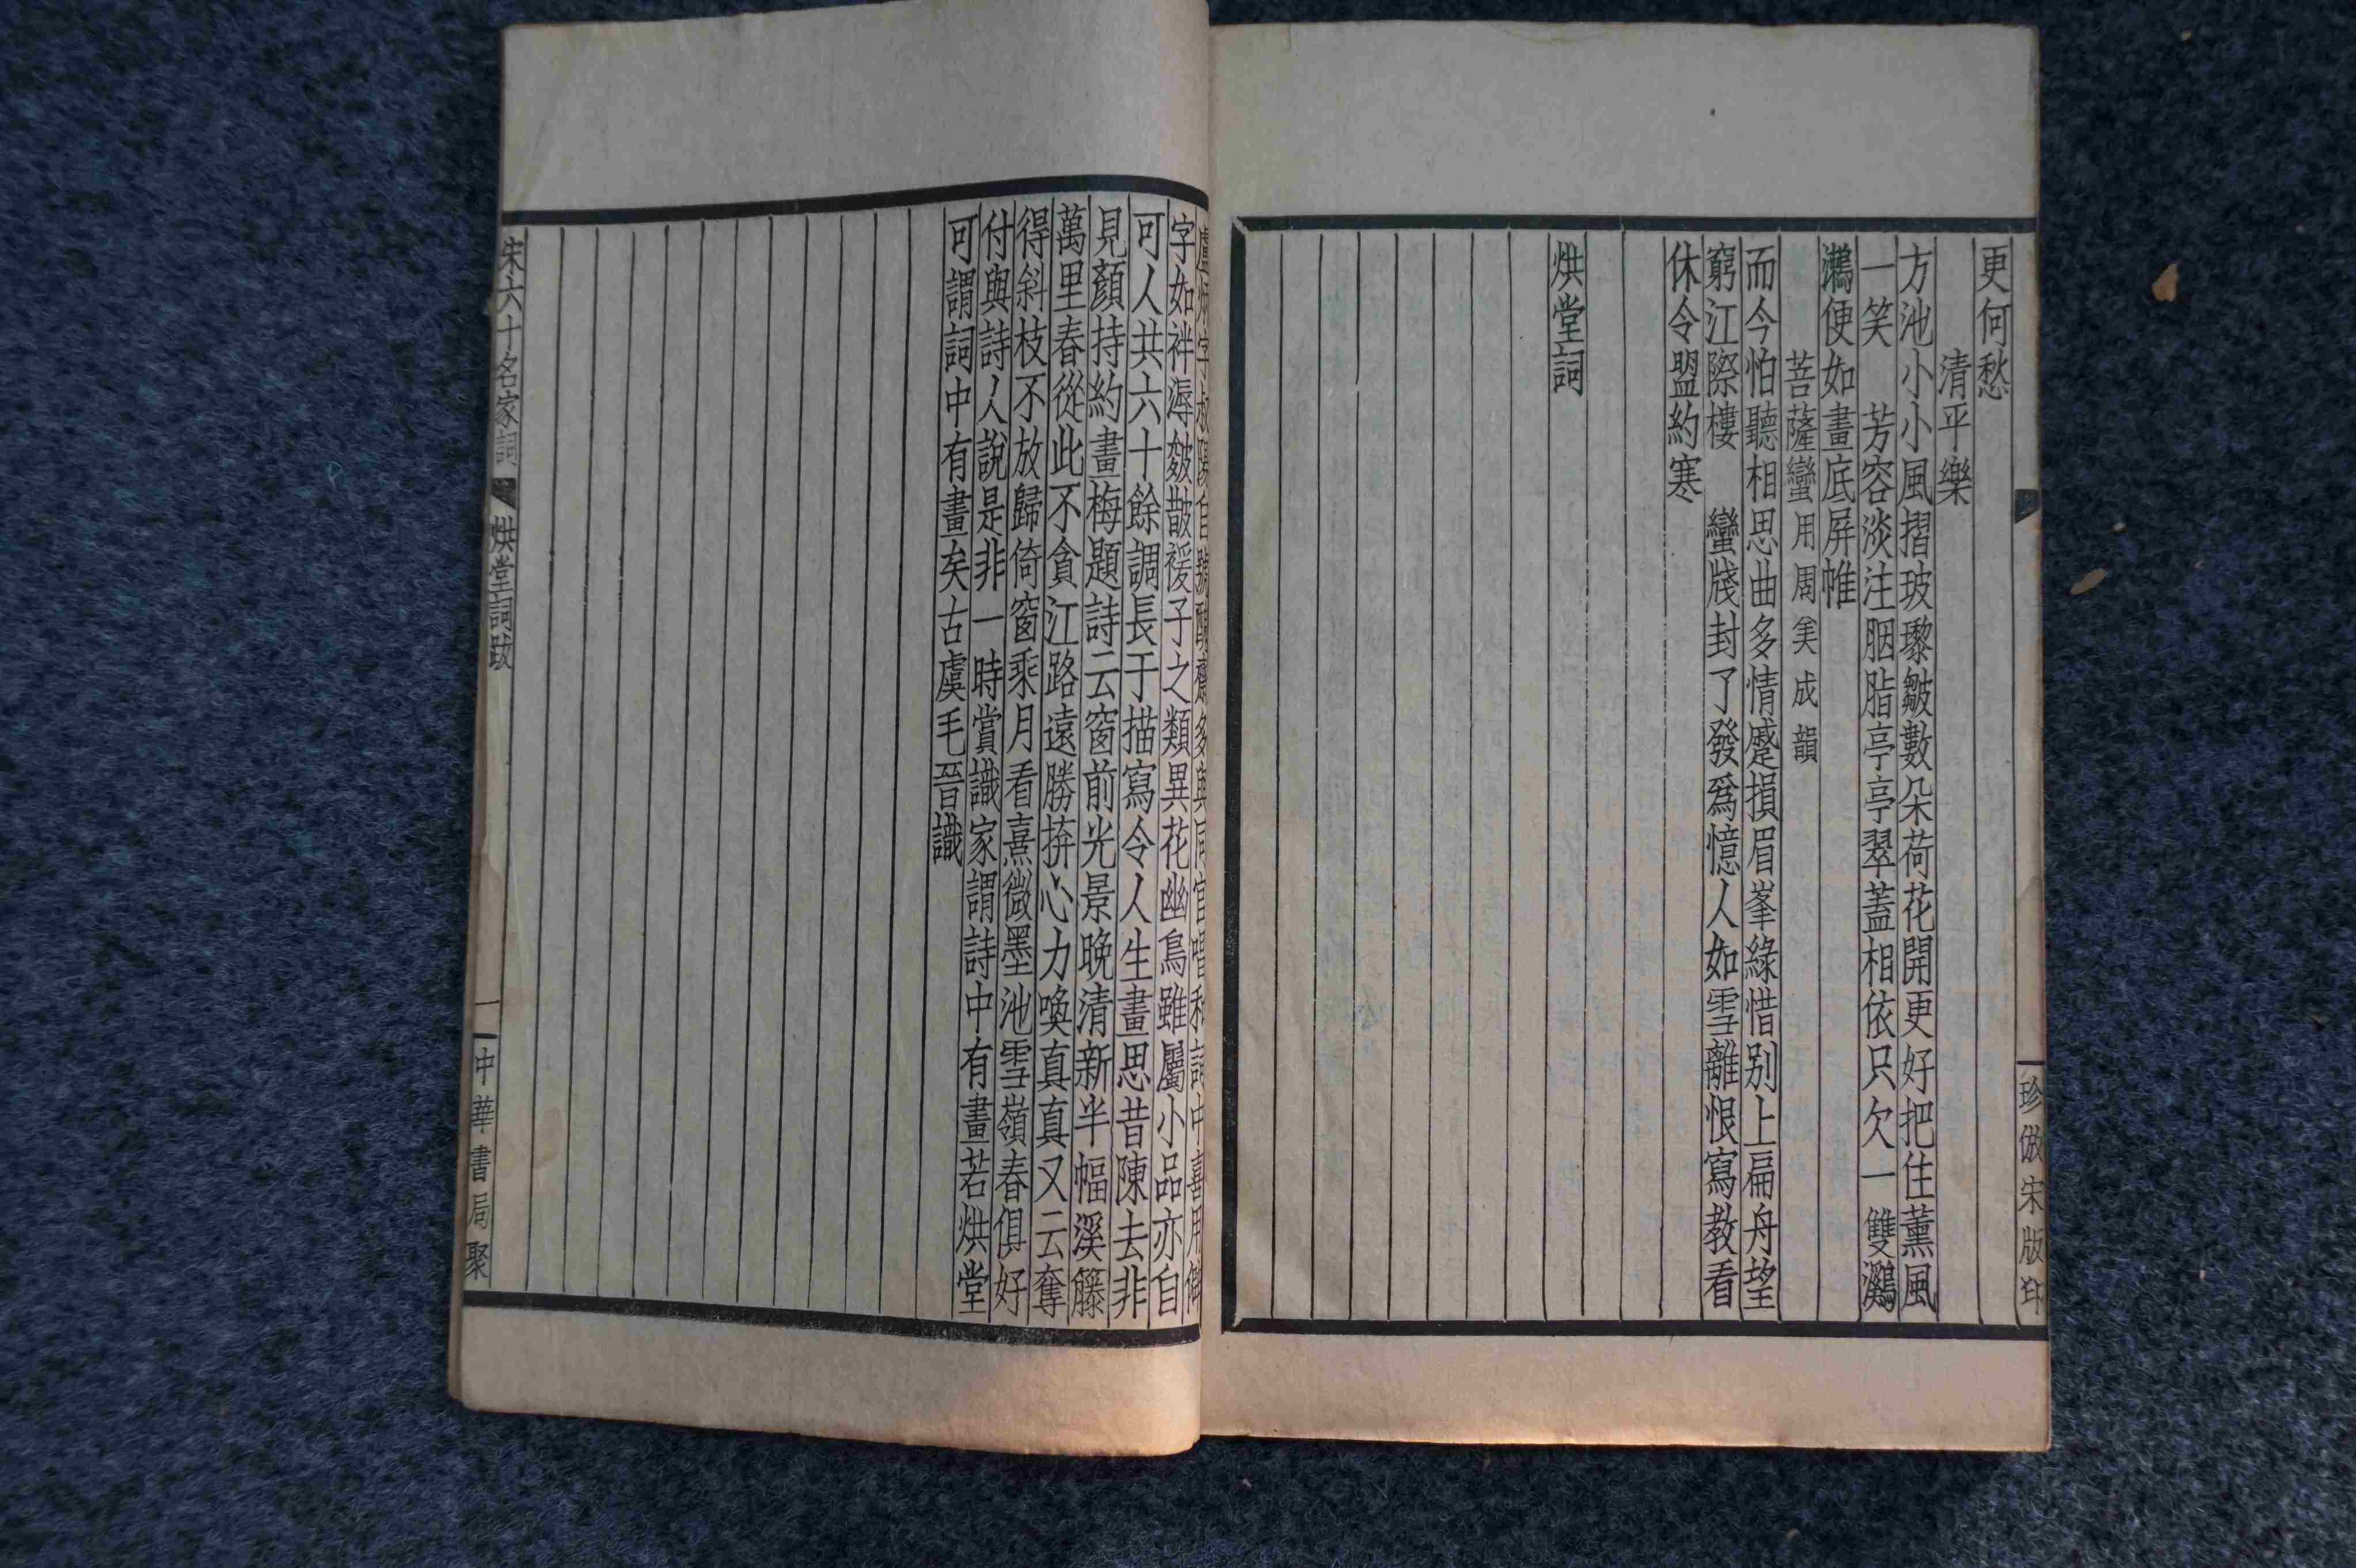 更何愁
清平樂
方池小小風摺玻瓈皺數朵荷花開更好把住薰風
一笑　芳容淡注胭脂亭亭翠蓋相依只欠一雙鸂
鶒便如畫底屏帷
菩薩蠻用周美成韻
而今怕聽相思曲多情蹙損眉峯綠惜别上扁舟望
窮江際樓　蠻牋封了發爲憶人如雪離恨寫教看
休令盟約寒
烘堂詞
珍倣宋版印
字如袢溽皴散褑子之類異花幽鳥雖屬小品亦自
可人共六十餘調長于描寫令人生畫思昔陳去非
見顏持約畫梅題詩云窗前光景晚清新半幅溪籐
萬里春從此不貪江路遠勝拚心力喚真真又云奪
得斜枝不放歸倚窗乘月看熹微墨池雪嶺春俱好
付與詩人說是非一時賞識家謂詩中有畫若烘堂
可謂詞中有畫矣古虞毛晉識
宋六十名家詞　烘堂詞跋　一　中華書局聚